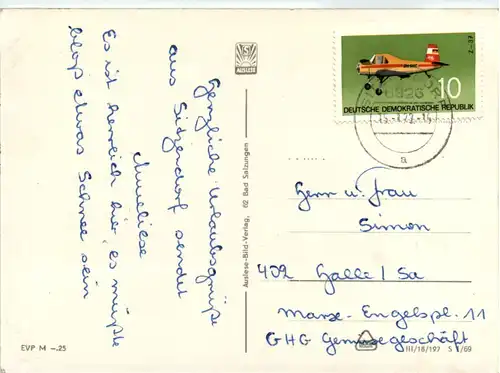 Herzliche Urlaubsgrüße
aus Sitzendorf sendet
Anneliese
Es ist herrlich hier, es müßte
bloß etwas Schnee sein
AUSLESE
EVP M –.25
Auslese-Bild-Verlag, 62 Bad Salzungen
Z-37
10
DEUTSCHE DEMOKRATISCHE REPUBLIK
a
Herrn u. Frau
Simon
402 Halle / Sa
Marx-Engelspl. 11
GHG Gemüsegeschäft
III/18/197 S 1/69